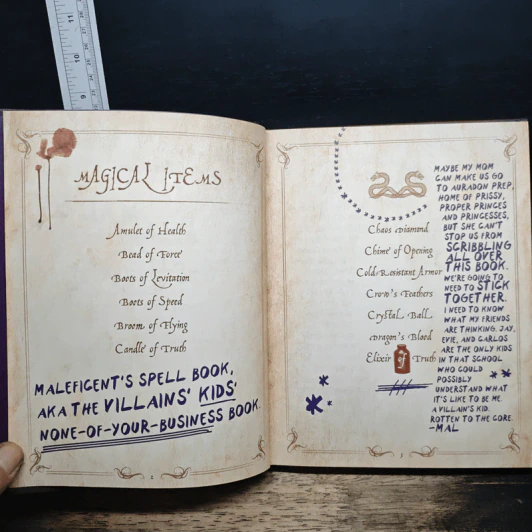 11
10
9
MAGICAL ITEMS
Amulet of Health
Bead of Force
Boots of Levitation
Boots of Speed
Broom of Flying
Candle of Truth
MALEFICENT'S SPELL BOOK,
AKA THE VILLAINS' KIDS'
NONE-OF-YOUR-BUSINESS BOOK.
2
Chaos Diamond
Chime of Opening
Cold-Resistant Armor
Crow's Feathers
Crystal Ball
Dragon's Blood
Elixir of Truth
MAYBE MY MOM
CAN MAKE US GO
TO AURADON PREP,
HOME OF PRISSY,
PROPER PRINCES
AND PRINCESSES,
BUT SHE CAN'T
STOP US FROM
SCRIBBLING
ALL OVER
THIS BOOK.
WE'RE GOING TO
NEED TO STICK
TOGETHER.
I NEED TO KNOW
WHAT MY FRIENDS
ARE THINKING. JAY,
EVIE, AND CARLOS
ARE THE ONLY KIDS
IN THAT SCHOOL
WHO COULD
POSSIBLY
UNDERSTAND WHAT
IT'S LIKE TO BE ME.
A VILLAIN'S KID.
ROTTEN TO THE CORE.
-MAL
3